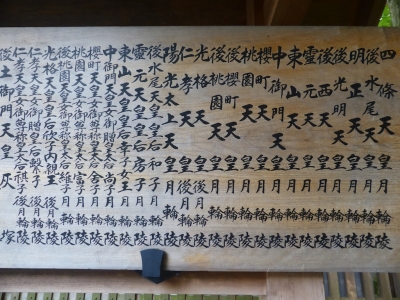 四條天皇月輪陵
後水尾天皇月輪陵
明正天皇月輪陵
後光明天皇月輪陵
後西天皇月輪陵
靈元天皇月輪陵
東山天皇月輪陵
中御門天皇月輪陵
櫻町天皇月輪陵
桃園天皇月輪陵
後櫻町天皇月輪陵
後桃園天皇月輪陵
光格天皇後月輪陵
仁孝天皇後月輪陵
陽光太上天皇月輪陵
後水尾天皇皇后和子月輪陵
靈元天皇皇后房子月輪陵
東山天皇皇后幸子女王月輪陵
中御門天皇女御贈皇太后尚子月輪陵
櫻町天皇女御尊称皇太后舍子月輪陵
桃園天皇女御尊称皇太后富子月輪陵
後桃園天皇女御尊称皇太后維子月輪陵
光格天皇皇后欣子内親王後月輪陵
仁孝天皇女御贈皇后繋子後月輪陵
仁孝天皇女御尊称皇太后祺子後月輪陵
後土御門天皇灰塚